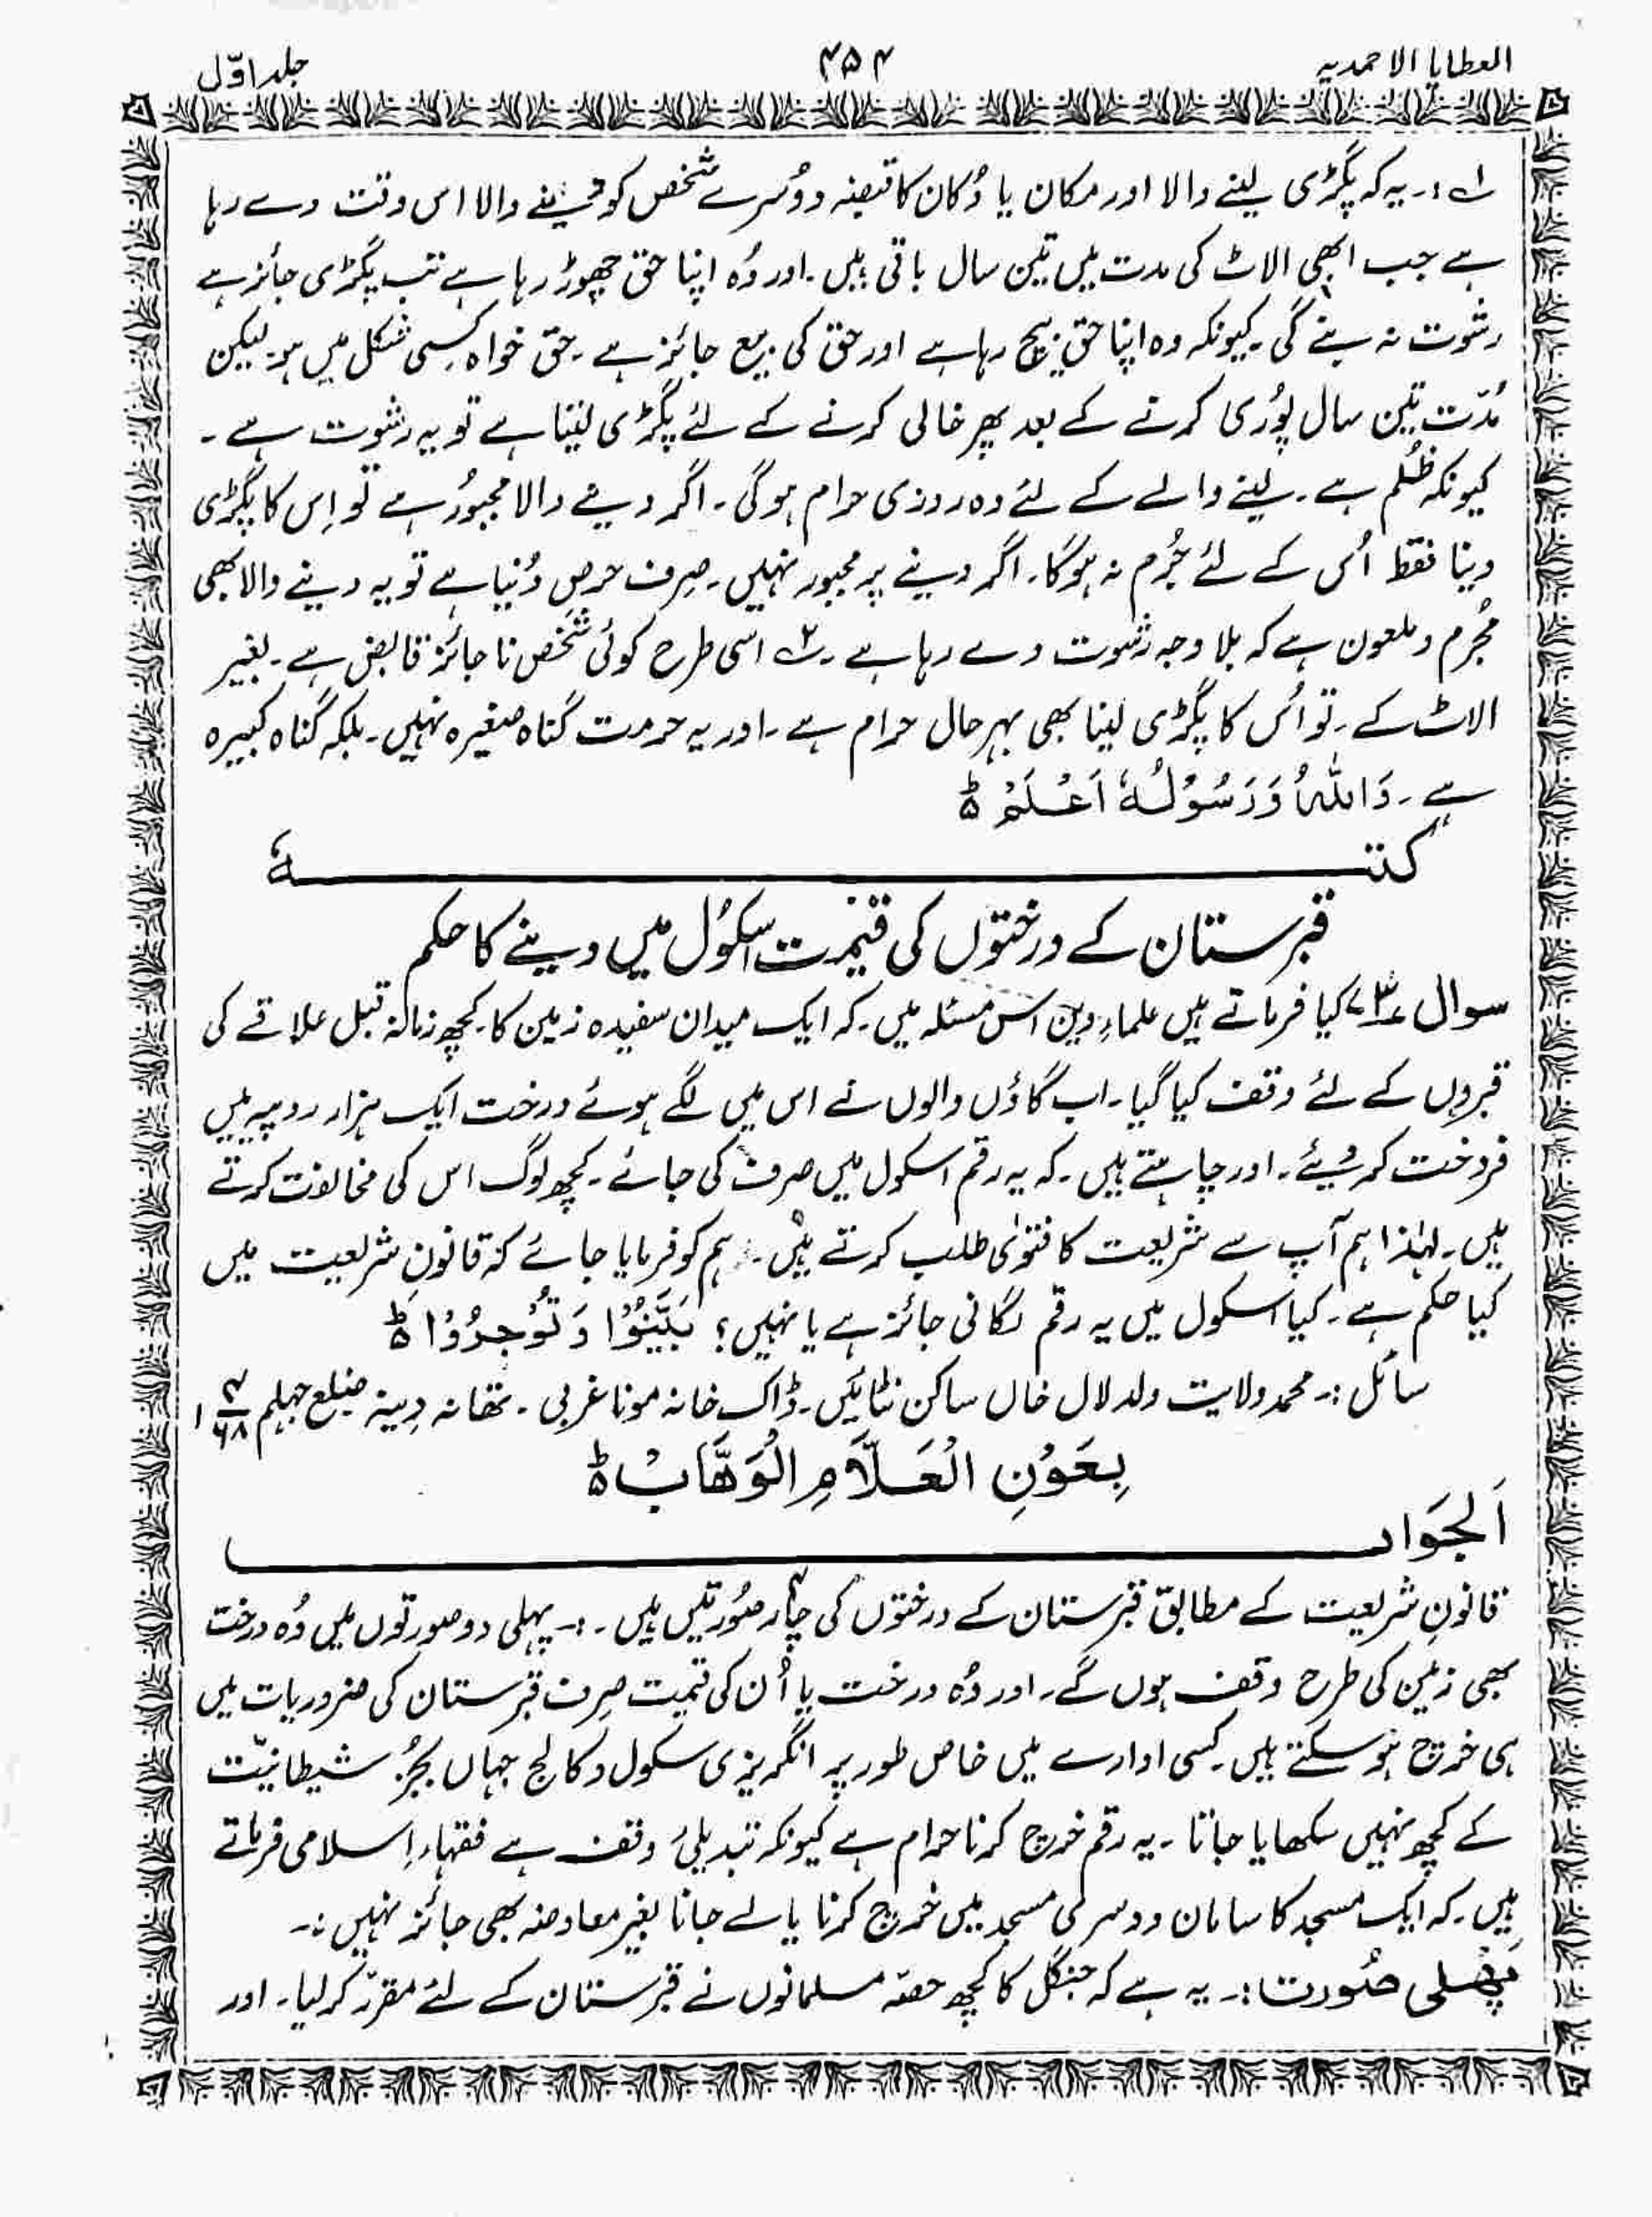 العطایا الاحمدیہ
۴۵۴
جلد اوّل
۱؎ :۔ یہ کہ پگڑی لینے والا اور مکان یا دُکان کا قبضہ دوُسرے شخص کو دینے والا اس وقت دے رہا
ہے جب ابھی الاٹ کی مدت میں تین سال باقی ہیں ۔ اور وُہ اپنا حق چھوڑ رہا ہے تب پگڑی جائز ہے
رشوت نہ بنے گی ۔ کیونکہ وہ اپنا حق بیچ رہا ہے اور حق کی بیع جائز ہے ۔ حق خواہ کسی شکل میں ہو ۔ لیکن
مُدّت تین سال پوُری کرنے کے بعد پھر خالی کرنے کے لئے پگڑی لیتا ہے تو یہ رشوت ہے ۔
کیونکہ ظُلم ہے ۔ لینے والے کے لئے وہ روزی حرام ہوگی ۔ اگر دینے والا مجبوُر ہے تو اِس کا پگڑی
دینا فقط اُس کے لئے جُرم نہ ہوگا ۔ اگر دینے پر مجبور نہیں ۔ صِرف حرصِ دُنیا ہے تو یہ دینے والا بھی
مُجرم و ملعون ہے کہ بلا وجہ رشوت دے رہا ہے ۔ ۲؎ اسی طرح کوئی شخص نا جائز قابض ہے ۔ بغیر
الاٹ کے ۔ تو اُس کا پگڑی لینا بھی بہرحال حرام ہے ۔ اور یہ حرمت گناہ صغیرہ نہیں ۔ بلکہ گناہ کبیرہ
ہے ۔ وَاللّٰہُ وَرَسُوْلُہٗ اَعْلَمُ ط
کتبـــــــہٗ
قبرستان کے درختوں کی قیمت اسکوُل میں دینے کا حکم
سوال کیا فرماتے ہیں علماءِ دین اس مسئلہ میں ۔ کہ ایک میدان سفیدہ زمین کا ۔ کچھ زمانہ قبل علاقے کی
قبروں کے لئے وقف کیا گیا ۔ اب گاؤں والوں نے اس میں لگے ہوئے درخت ایک ہزار روپیہ میں
فروخت کر دیئے ۔ اور چاہتے ہیں ۔ کہ یہ رقم اسکول میں صرف کی جائے ۔ کچھ لوگ اس کی مخالفت کرتے
ہیں ۔ لہٰذا ہم آپ سے شریعت کا فتوٰی طلب کرتے ہیں ۔ ہم کو فرمایا جائے کہ قانونِ شریعت میں
کیا حکم ہے ۔ کیا اسکول میں یہ رقم لگانی جائز ہے یا نہیں ؟ بَیِّنُوْا وَتُوْجِرُوْا ط
سائل :۔ محمد ولایت ولد لال خاں ساکن نٹائیں ۔ ڈاک خانہ مونا غربی ۔ تھانہ دینہ ضلع جہلم
بِعَوْنِ الْعَلَّامِ الْوَھَّابْ ط
اَلجَوابـــــــ
قانونِ شریعت کے مطابق قبرستان کے درختوں کی چار صوُرتیں ہیں ۔ :۔ پہلی دو صورتوں میں وُہ درخت
بھی زمین کی طرح وقف ہوں گے ۔ اور وُہ درخت یا اُن کی قیمت صِرف قبرستان کی ضروریات میں
ہی خرچ ہو سکتے ہیں ۔ کسی ادارے میں خاص طور پر انگریزی سکول و کالج جہاں بجُز شیطانیّت
کے کچھ نہیں سکھایا جاتا ۔ یہ رقم خرچ کرنا حرام ہے کیونکہ تبدیلیٔ وقف ہے فقہاء اِسلامی فرماتے
ہیں ۔ کہ ایک مسجد کا سامان دوسری مسجد میں خرچ کرنا یا لے جانا بغیر معاوضہ بھی جائز نہیں :۔
پَھلی صُورت :۔ یہ ہے کہ جنگل کا کچھ حصّہ مسلمانوں نے قبرستان کے لئے مقررّ کر لیا ۔ اور